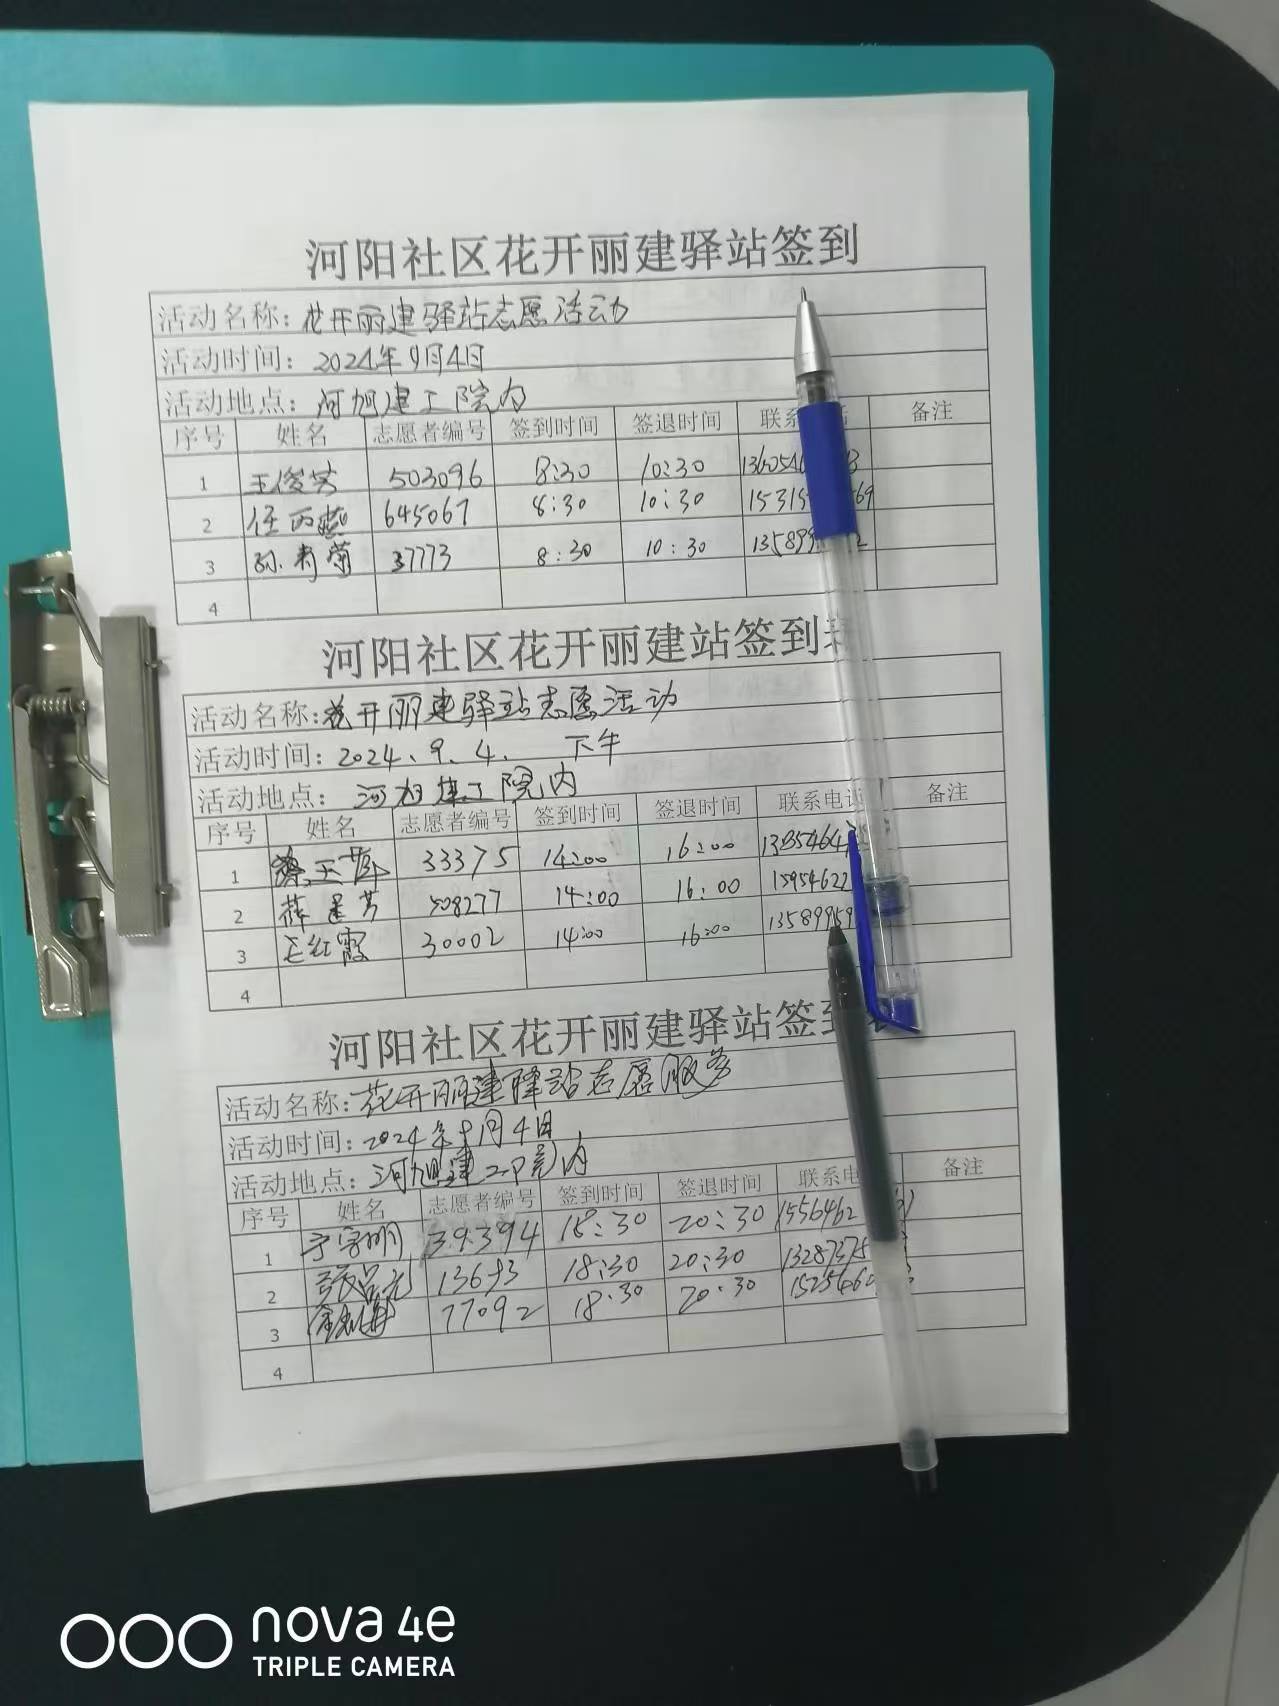 河阳社区花开丽建驿站签到
活动名称：花开丽建驿站志愿活动
活动时间：2024年9月4日
活动地点：河旭建工院内
序号 姓名 志愿者编号 签到时间 签退时间 联系 备注
1 王俊英 503096 8:30 10:30
2 任丙燕 645067 8:30 10:30
3 孙秀菊 37773 8:30 10:30
4
河阳社区花开丽建站签到
活动名称：花开丽建驿站志愿活动
活动时间：2024、9、4、 下午
活动地点：河旭建工院内
序号 姓名 志愿者编号 签到时间 签退时间 联系电话 备注
1 33375 14:00 16:00
2 508277 14:00 16:00
3 王红霞 30002 14:00 16:00
4
河阳社区花开丽建驿站签到
活动名称：花开丽建驿站志愿服务
活动时间：2024年9月4日
活动地点：河旭建工院内
序号 姓名 志愿者编号 签到时间 签退时间 联系电 备注
1 39394 18:30 20:30
2 13693 18:30 20:30
3 77092 18:30 20:30
4
nova 4e
TRIPLE CAMERA